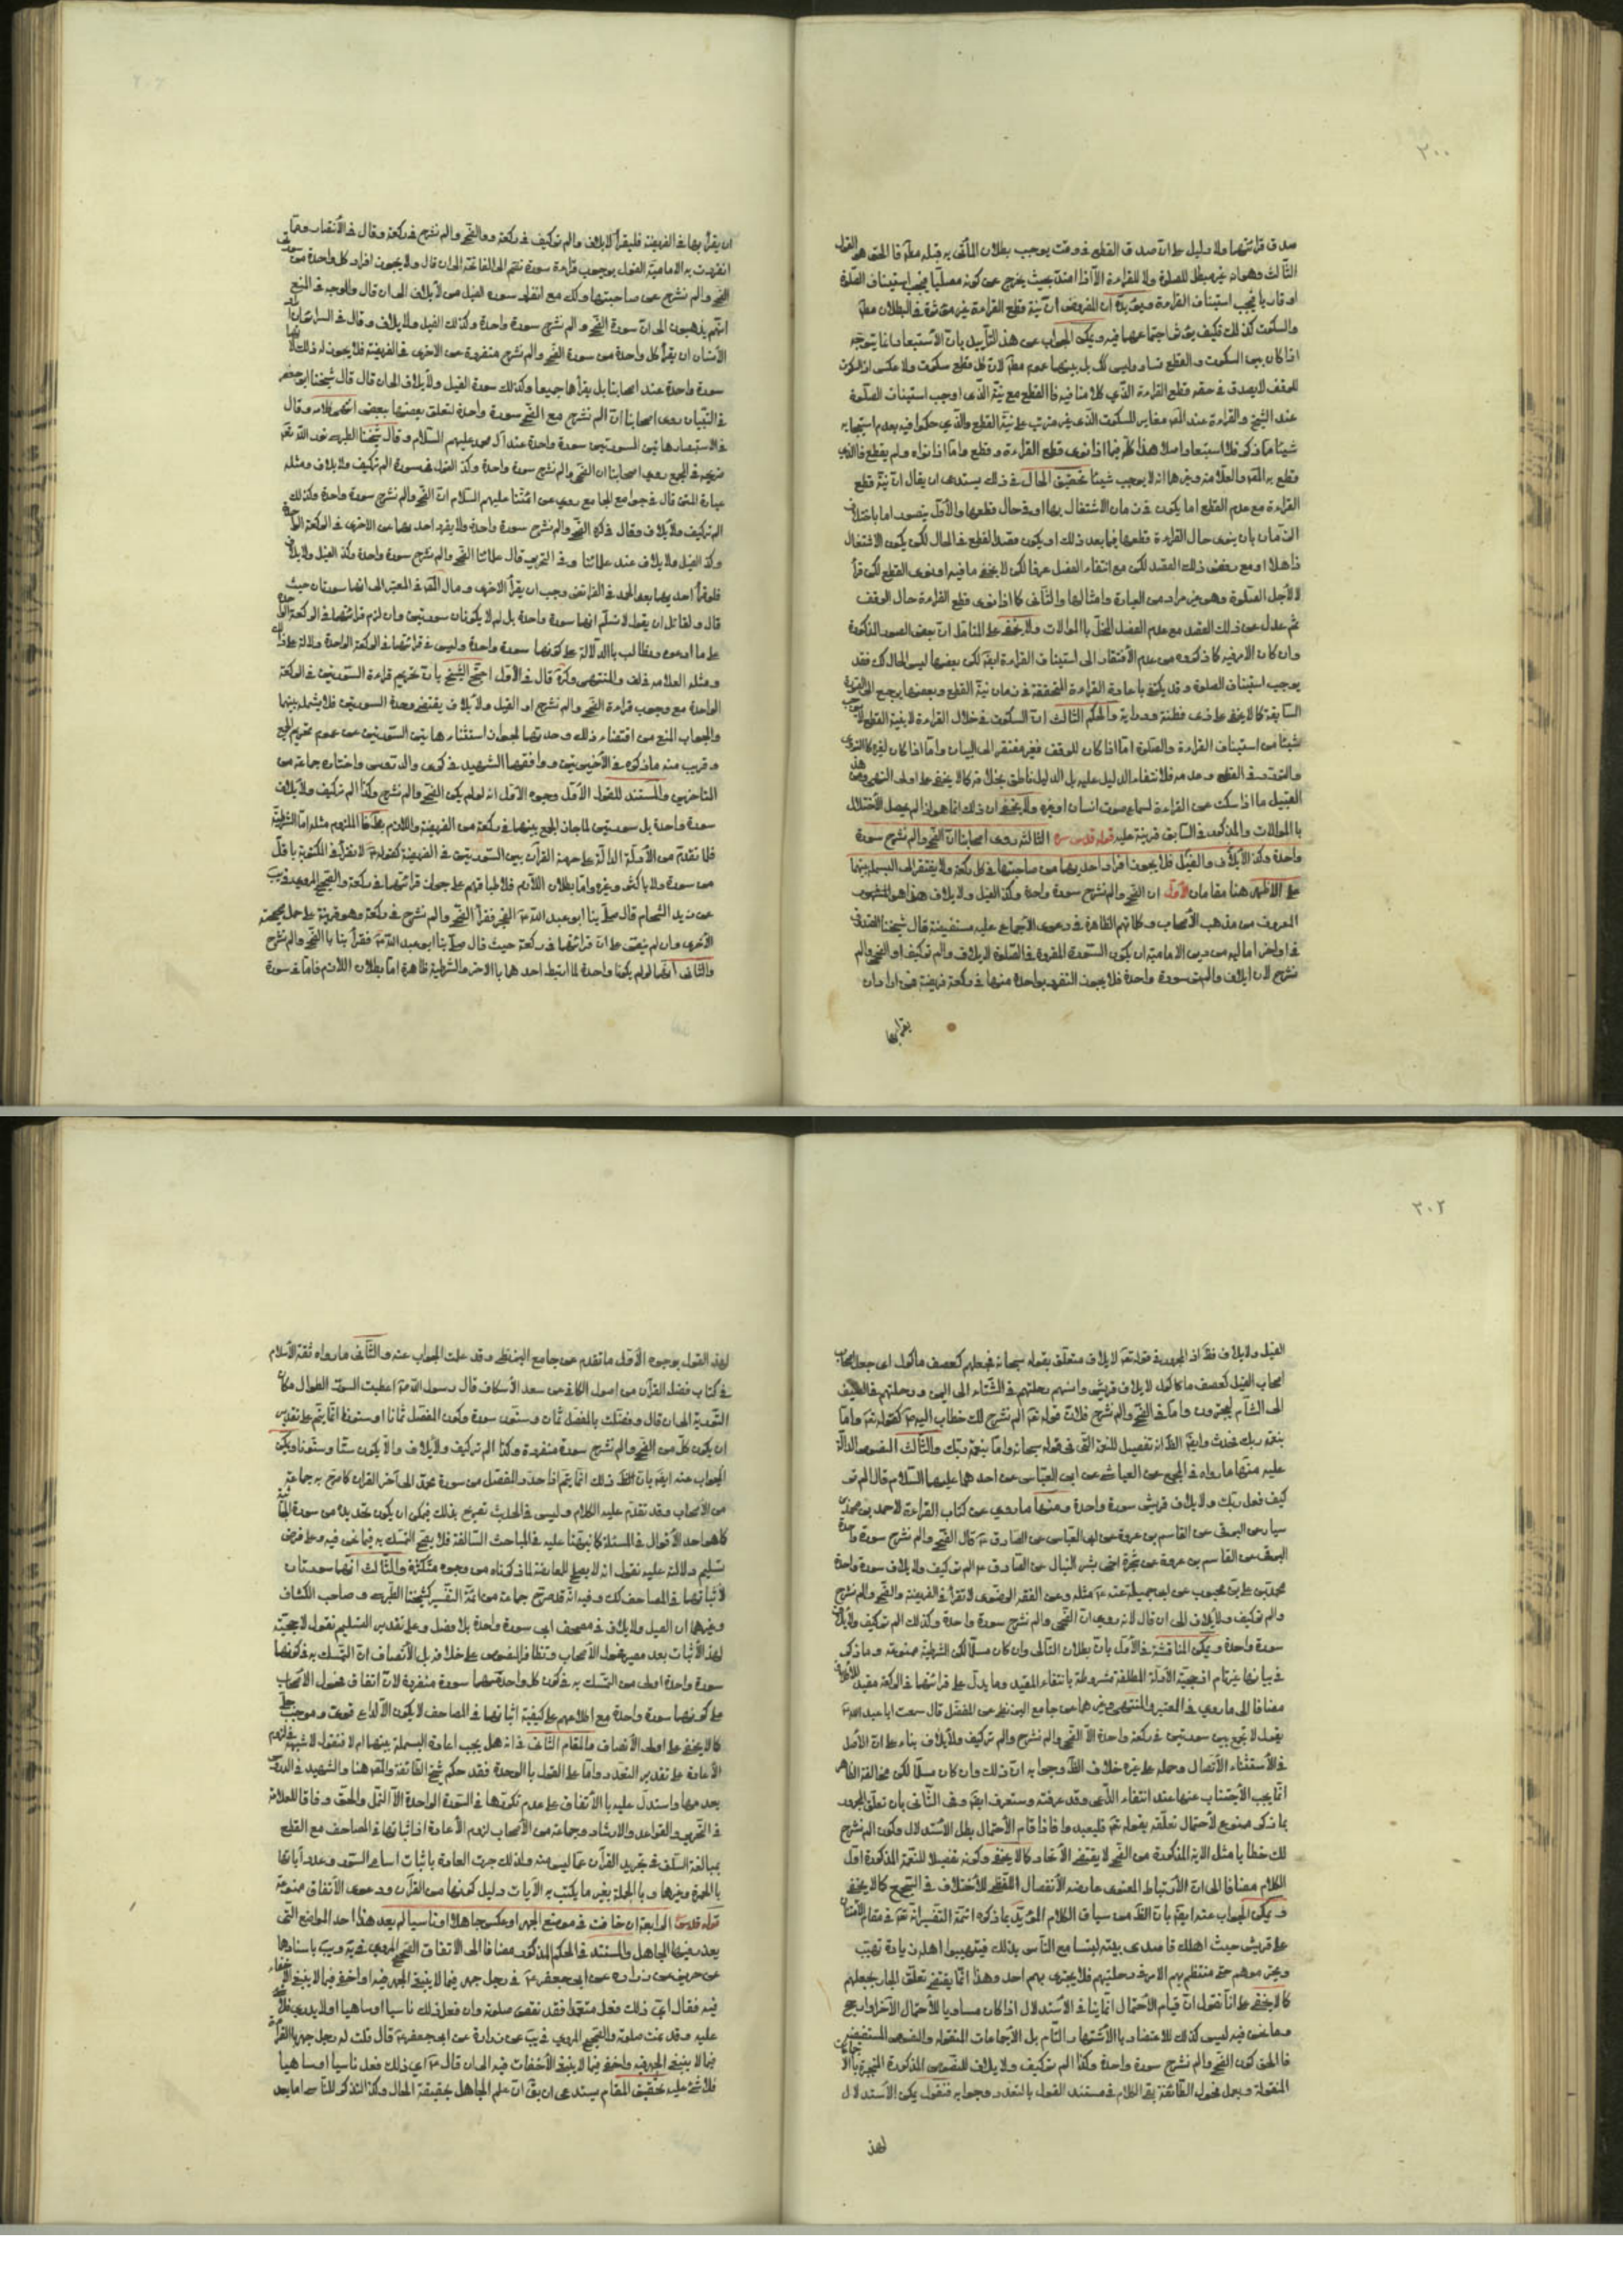 ٢٠٠
صدق قرائتهما ولا دليل على ان صدق القطع في وقت يوجب بطلان المأتي به قبله مطلقا فالحق هو القول
الثالث وهو انه غير مبطل للصلوة ولا للقراءة الا اذا امتد بحيث يخرج عن كونه مصليا فيجب استيناف الصلوة
والسكوت كذلك فكيف يؤثر اجتماعهما فيه ويمكن الجواب عن هذا التأييد بان الاستبعاد انما يتوجه
اذا كان بين السكوت والقطع تساو وليس كذلك بل بينهما عموم مطلق لان كل قطع سكوت ولا عكس اذ السكوت
للوقف لا يصدق في حقه قطع القراءة الذي كلامنا فيه فالقطع مع نية الذي اوجب استيناف الصلوة
القراءة مع عدم القطع اما يكون في زمان الاشتغال بها او في حال قطعها والاول يتصور اما باختلاف
الزمان بان ينوي حال القراءة قطعها فيما بعد ذلك او يكون مقصد القطع في الحال لكن يكون الاشتغال
ثم عدل عن ذلك القصد مع عدم الفصل المخل بالموالات ولا يخفى على المتأمل ان بعض الصور المذكورة
يوجب استيناف الصلوة وقد يكتفى باعادة القراءة المتحققة في زمان نية القطع وبعضها يرجع الى الصورة
السابقة كما لا يخفى على ذي فطنة ودراية والحكم الثالث ان السكوت في خلال القراءة لا بنية القطع لا يوجب
شيئا من استيناف القراءة والصلوة اما اذا كان للوقف فغير مفتقر الى البيان واما اذا كان لغيره كالتروي
القبيل ما اذا سكت عن القراءة لسماع صوت انسان او غيره ولا يخفى ان ذلك انما هو اذا لم يحصل الاختلال
بالموالات والمذكور في السابق قرينة عليه قوله قدس سره الثالثة روى اصحابنا ان الضحى والم نشرح سورة
واحدة وكذا الايلاف والفيل فلا يجوز افراد احديهما من صاحبتها في كل ركعة ولا يفتقر الى البسملة بينهما
على الاظهر هنا مقامان الاول ان الضحى والم نشرح سورة واحدة وكذا الفيل ولايلاف هذا هو المشهور
المعروف من مذهب الاصحاب وكلماتهم الظاهرة في دعوى الاجماع عليه مستفيضة قال شيخنا الصدوق
في اواخر اماليه من دين الامامية ان يكون السورة المقروة في الصلوة لايلاف والم تر كيف او الضحى والم
نشرح لان ايلاف والم تر سورة واحدة فلا يجوز التفرد بواحدة منها في ركعة فريضة فمن اراد ان
يقرأ بها
ان يقرأ بها في الفريضة فليقرأ لايلاف والم تر كيف في ركعة والضحى والم نشرح في ركعة وقال في الانتصار ومما
انفردت به الامامية القول بوجوب قراءة سورة تضم الى الفاتحة الى ان قال ولا يجوز افراد كل واحدة من سورتي
الضحى والم نشرح عن صاحبتها وكذلك انفراد سورة الفيل من لايلاف الى ان قال والوجه في المنع
انهم يذهبون الى ان سورة الضحى والم نشرح سورة واحدة وكذلك الفيل ولايلاف وقال في السرائر
الانسان ان يقرأ كل واحدة من سورة الضحى والم نشرح منفردة عن الاخرى في الفريضة فلا يجوز له ذلك
سورة واحدة عند اصحابنا بل يقرأها جميعا وكذلك سورة الفيل ولايلاف الى ان قال قال شيخنا ابو جعفر
في التبيان روى اصحابنا ان الم نشرح مع الضحى سورة واحدة لتعلق بعضها ببعض انتهى كلامه وقال
في الاستبصار هاتين السورتين سورة واحدة عند آل محمد عليهم السلام وقال شيخنا الطبرسي نور الله
مرقده في المجمع روى اصحابنا ان الضحى والم نشرح سورة واحدة وكذا القول في سورة الم تر كيف ولايلاف ومثله
عبارة المتن قال في جوامع الجامع روي عن ائمتنا عليهم السلام ان الضحى والم نشرح سورة واحدة وكذلك
الم تر كيف ولايلاف وقال في كره الضحى والم نشرح سورة واحدة ولا يفرد احديهما عن الاخرى في الركعة الواحدة
وكذا الفيل ولايلاف عند علمائنا وفي التحرير قال علمائنا الضحى والم نشرح سورة واحدة وكذا الفيل ولايلاف
فلو قرأ احديهما بعد الحمد في الفرائض وجب ان يقرأ الاخرى ومال المحقق في المعتبر الى انهما سورتان حيث
قال ولقائل ان يقول لا نسلم انهما سورة واحدة بل لم لا يكونان سورتين وان لزم قرائتهما في الركعة الواحدة
على ما ادعوه ونطالب بالدلالة على كونهما سورة واحدة وليس في قرائتهما في الركعة الواحدة دلالة على ذلك
الواحدة مع وجوب قراءة الضحى والم نشرح او الفيل ولايلاف يقتضي وحدة السورتين فلا يبسمل بينهما
والجواب المنع من اقتضاء ذلك وحدتهما لجواز استثناء هاتين السورتين من عموم تحريم الجمع
المتاخرين والمستند للقول الاول وجوه الاول انه لو لم يكن الضحى والم نشرح وكذا الم تر كيف ولايلاف
سورة واحدة بل سورتين لما جاز الجمع بينهما في ركعة من الفريضة واللازم بط فالملزوم مثله اما الشرطية
فلما تقدم من الادلة الدالة على حرمة القرآن بين السورتين في الفريضة كقوله لا تقرأ في المكتوبة باقل
من سورة ولا باكثر وغيره واما بطلان اللازم فلاطباقهم على جواز قرائتهما في ركعة والصحيح المروي في يب
عن زيد الشحام قال صلى بنا ابو عبد الله ع الفجر فقرأ الضحى والم نشرح في ركعة وهو قرينة على حمل صحيحته
الاخرى وان لم ينص على ان قرائتهما في ركعة حيث قال صلى بنا ابو عبد الله ع فقرأ بنا بالضحى والم نشرح
والثاني انهما لو لم يكونا واحدة لما ارتبط احدهما بالاخر والشرطية ظاهرة اما بطلان اللازم فاما في سورة
٢٠٢
الفيل ولايلاف فظ اذ المجرور في قوله تعالى لايلاف متعلق بقوله سبحانه فجعلهم كعصف ماكول اي جعل اصحاب
اصحاب الفيل كعصف ماكول لايلاف قريش وانسهم رحلتهم في الشتاء الى اليمن ورحلتهم في الصيف
الى الشام ليمترون واما في الضحى والم نشرح فلان قوله تعالى الم نشرح لك خطاب اليه ص كقوله تعالى واما
بنعمة ربك فحدث وايضا الظ انه تفصيل للنعمة التي في قوله سبحانه واما بنعمة ربك والثالث النصوص الدالة
عليه منها ما رواه في المجمع عن العياشي عن ابي العباس عن احدهما عليهما السلام قال الم تر
كيف فعل ربك ولايلاف قريش سورة واحدة ومنها ما روي عن كتاب القراءة لاحمد بن محمد بن
سيار عن البرقي عن القاسم بن عروة عن ابي العباس عن الصادق ع قال الضحى والم نشرح سورة واحدة
البرقي عن القاسم بن عروة عن شجرة اخي بشر النبال عن الصادق ع الم تر كيف ولايلاف سورة واحدة
محمد بن علي بن محبوب عن ابي جميلة عنه ع مثله وعن الفقه الرضوي لا تقرأ في الفريضة والضحى والم نشرح
والم تر كيف ولايلاف الى ان قال لانه روي ان الضحى والم نشرح سورة واحدة وكذلك الم تر كيف ولايلاف
سورة واحدة ويمكن المناقشة في الاول بان بطلان التالي وان كان مسلما لكن الشرطية ممنوعة وما ذكر
في بيانها غير تام اذ حجية الادلة المطلقة مشروطة بانتفاء المقيد وما يدل على قرائتهما في الركعة مقيد
مضافا الى ما روي في المعتبر والمنتهى وغيرهما عن جامع البزنطي عن المفضل قال سمعت ابا عبد الله ع
يقول لا تجمع بين سورتين في ركعة واحدة الا الضحى والم نشرح والم تر كيف ولايلاف بناء على ان الاصل
في الاستثناء الاتصال وحمله على غيره خلاف الظ وجوابه ان ذلك وان كان مسلما لكن مخالفة الظاهر
انما يجب الاجتناب عنها عند انتفاء الداعي وقد عرفته وستعرف ايضا وفي الثاني بان تعلق المجرور
بما ذكر ممنوع لاحتمال تعلقه بقوله تعالى فليعبدوا فاذا قام الاحتمال بطل الاستدلال وكون الم نشرح
لك خطابا مثل الاية المذكورة من الضحى لا يقتضي الاتحاد كما لا يخفى وكونه تفصيلا للنعمة المذكورة اول
الكلام مضافا الى ان الارتباط المعنوي عارضه الانفصال اللفظي للاختلاف في التسجيع كما لا يخفى
ويمكن الجواب عنه ايضا بان الظ من سياق الكلام المؤيد بما ذكره ائمة التفسير انه تعالى في مقام الامتنان
على قريش حيث اهلك قاصدي بيته ليتسامع الناس بذلك فيتهيبوا اهله زيادة تهيب
ويحترموهم حتى منتظم بهم الامر في رحلتهم فلا يجترى بهم احد وهذا انما يقتضي تعلق الجار بجعلهم
كما لا يخفى على انا نقول ان قيام الاحتمال انما ينافي الاستدلال اذا كان مساويا للاحتمال الآخر او ارجح
وما نحن فيه ليس كذلك للاعتضاد بالاشتهار التام بل الاجماعات المنقولة والنصوص المستفيضة
فالحق كون الضحى والم نشرح سورة واحدة وكذا الم تر كيف ولايلاف للنصوص المذكورة المنجبرة بالاجماعات
المنقولة وبعمل فحول الطائفة بقي الكلام في مستند القول بالتعدد وجوابه فنقول يمكن الاستدلال
لهذ
لهذا القول بوجوه الاول ما تقدم عن جامع البزنطي وقد علمت الجواب عنه والثاني ما رواه ثقة الاسلام
في كتاب فضل القرآن من اصول الكافي عن سعد الاسكاف قال رسول الله ص اعطيت السور الطوال مكان
التورية الى ان قال وفضلت بالمفصل ثمان وستون سورة وكون المفصل ثمانا وستون انما يتم على تقدير
ان يكون كل من الضحى والم نشرح سورة منفردة وكذا الم تر كيف ولايلاف والا يكون ستا وستون ويمكن
الجواب عنه ايضا بان الظ ذلك انما يتم اذا حدد المفصل من سورة محمد الى آخر القرآن كما صرح به جماعة
من الاصحاب وقد تقدم عليه الكلام وليس في الحديث تصريح بذلك فيمكن ان يكون تحديده من سورة الجاثية
كما هو احد الاقوال في المسئلة كما نبهنا عليه في المباحث السالفة فلا يصح التمسك به فيما نحن فيه وعلى فرض
تسليم دلالته عليه نقول انه لا يصلح للمعارضة لما ذكرناه من وجوه متكثرة والثالث انهما سورتان
لاثباتهما في المصاحف كك وفيه انه قد صرح جماعة من ائمة التفسير كشيخنا الطبرسي وصاحب الكشاف
وغيرهما ان الفيل ولايلاف في مصحف ابي سورة واحدة بلا فصل وعلى تقدير التسليم نقول لا حجية
لهذا الاثبات بعد مصير فحول الاصحاب وتظافر النصوص على خلافه بل الانصاف ان التمسك به في كونهما
سورة واحدة اولى من التمسك به في كون كل واحدة منهما سورة منفردة لان اتفاق فحول الاصحاب
على كونهما سورة واحدة مع اطلاعهم على كيفية اثباتهما في المصاحف لا يكون الا لداع قوي وموجب جلي
كما لا يخفى على اولي الانصاف والمقام الثاني في انه هل يجب اعادة البسملة بينهما ام لا فنقول لا شبهة في لزوم
الاعادة على تقدير التعدد واما على القول بالوحدة فقد حكم شيخ الطائفة والمحقق هنا والشهيد في الدروس
بعدمها واستدل عليه بالاتفاق على عدم تكررها في السورة الواحدة الا النمل والحق وفاقا للعلامة
في التحرير والقواعد والارشاد وجماعة من الاصحاب لزوم الاعادة اذ اثباتها في المصاحف مع القطع
بمبالغة السلف في تجريد القرآن عما ليس منه ولذلك جرت العادة باثبات اسامي السور وعدد آياتها
بالحمرة وغيرها وبالجملة بغير ما يكتب به الآيات دليل كونها من القرآن ودعوى الاتفاق ممنوعة
قوله قدس سره الرابعة ان خافت في موضع الجهر او عكس جاهلا او ناسيا لم يعد هذا احد المواضع التي
يعذر فيها الجاهل والمستند في الحكم المذكور مضافا الى الاتفاق الصحيح المروي في يه ويب باسنادهما
عن حريز عن زرارة عن ابي جعفر ع في رجل جهر فيما لا ينبغي الجهر فيه او اخفى فيما لا ينبغي الاخفاء
فيه فقال اي ذلك فعل متعمدا فقد نقض صلوته وان فعل ذلك ناسيا او ساهيا او لا يدري فلا شيء
عليه وقد تمت صلوته والصحيح المروي في يب عن زرارة عن ابي جعفر ع قال قلت له رجل جهر بالقراءة
فيما لا ينبغي الجهر فيه واخفى فيما لا ينبغي الاخفات فيه الى ان قال ع اي ذلك فعل ناسيا او ساهيا
فلا شيء عليه تحقيق المقام يستدعي ان يقال ان علم الجاهل بحقيقة الحال وكذا التذكر للناسي اما بعد